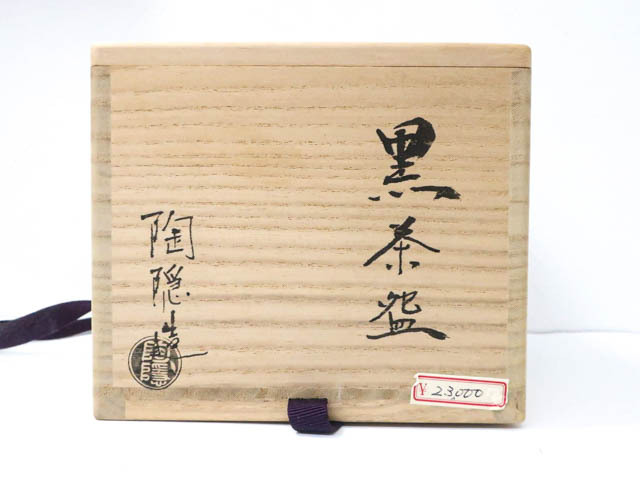 黒茶盌
陶隠造
陶隠
¥ 23,000